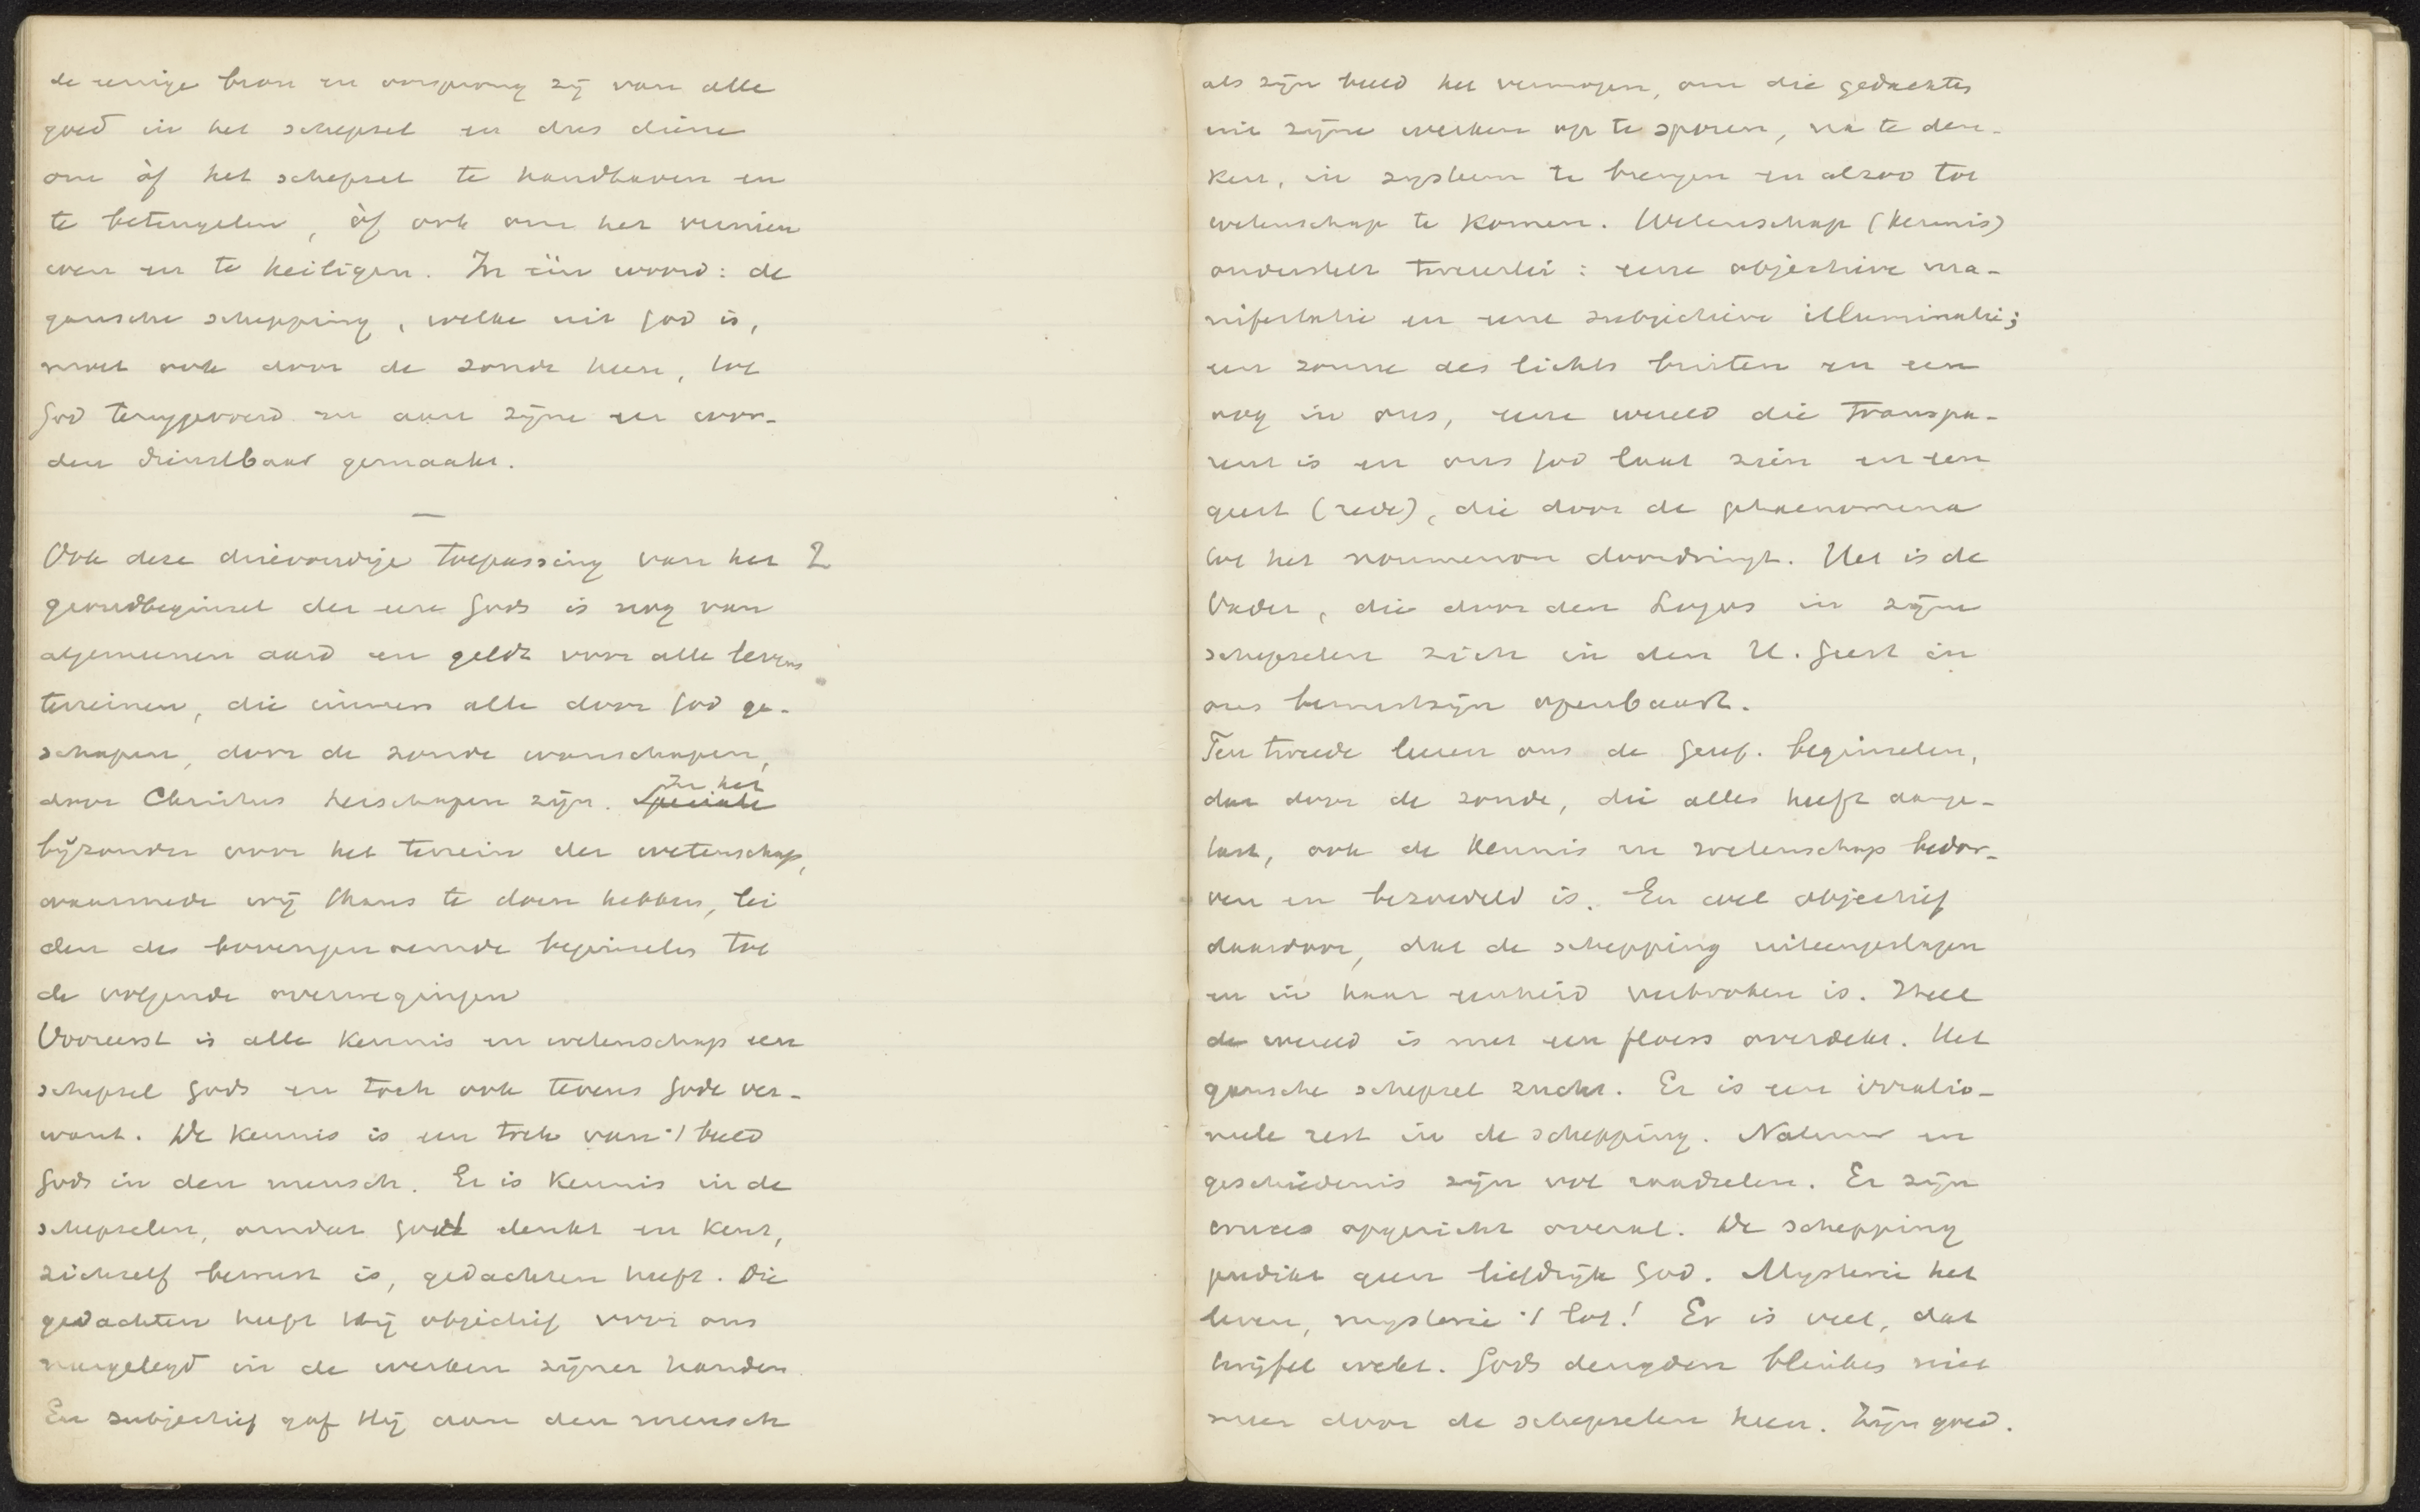 de eenige bron en oorsprong zij van alle
goed in het schepsel en dus diene
om òf het schepsel te handhaven en
te beteugelen, òf ook om het vernieu
wen en te heiligen. In één woord: de
gansche schepping, welke uit God is,
moet ook door de zonde heen, tot
God teruggevoerd en aan zijne eer wor-
den dienstbaar gemaakt.
—
Ook deze drievoudige toepassing van het 2
grondbeginsel der eere Gods is nog van
algemeenen aard en geldt voor alle levens
terreinen, die immers alle door God ge-
schapen, door de zonde wanschapen,
door Christus herschapen zijn. Speciale In het
bijzonder voor het terrein der wetenschap,
waarmede wij thans te doen hebben, lei
den de bovengenoemde beginselen tot
de volgende overwegingen
Vooreerst is alle kennis en wetenschap een
schepsel Gods en toch ook tevens Gode ver-
want. De kennis is een trek van 't beeld
Gods in den mensch. Er is kennis in de
schepselen, omdat God denkt en kent,
zichzelf bewust is, gedachten heeft. Die
gedachten heeft Hij objectief voor ons
neergelegd in de werken zijner handen
En subjectief gaf Hij aan den mensch
als zijn beeld het vermogen, om die gedachten
uit zijne werken op te sporen, na te den-
ken, in systeem te brengen en alzoo tot
wetenschap te komen. Wetenschap (kennis)
onderstelt tweeërlei: eene objectieve ma-
nifestatie en eene subjectieve illuminatie;
een zonne des lichts buiten en een
oog in ons, eene wereld die transpa-
rent is en ons God laat zien en een
geest (rede), die door de phaenomena
tot het noumenon doordringt. Het is de
Vader, die door den Logos in zijne
schepselen zich in den H. Geest in
ons bewustzijn openbaart.
Ten tweede leeren ons de Geref. beginselen,
dat door de zonde, die alles heeft aange-
tast, ook de kennis en wetenschap bedor-
ven en bezoedeld is. En wel objectief
daardoor, dat de schepping uiteengeslagen
en in haar eenheid verbroken is. Heel
de wereld is met een floers overdekt. Het
gansche schepsel zucht. Er is een irratio-
neele rest in de schepping. Natuur en
geschiedenis zijn vol raadselen. Er zijn
cruces opgericht overal. De schepping
predikt geen liefdrijk God. Mysterie het
leven, mysterie 't lot! Er is veel, dat
twijfel wekt. Gods deugden blinken niet
meer door de schepselen heen. Zijn goed.